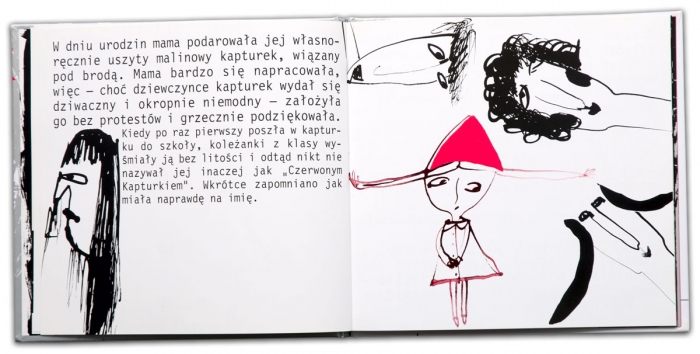 W dniu urodzin mama podarowała jej własno-
ręcznie uszyty malinowy kapturek, wiązany
pod brodą. Mama bardzo się napracowała,
więc – choć dziewczynce kapturek wydał się
dziwaczny i okropnie niemodny – założyła
go bez protestów i grzecznie podziękowała.
Kiedy po raz pierwszy poszła w kaptur-
ku do szkoły, koleżanki z klasy wy-
śmiały ją bez litości i odtąd nikt nie
nazywał jej inaczej jak „Czerwonym
Kapturkiem". Wkrótce zapomniano jak
miała naprawdę na imię.